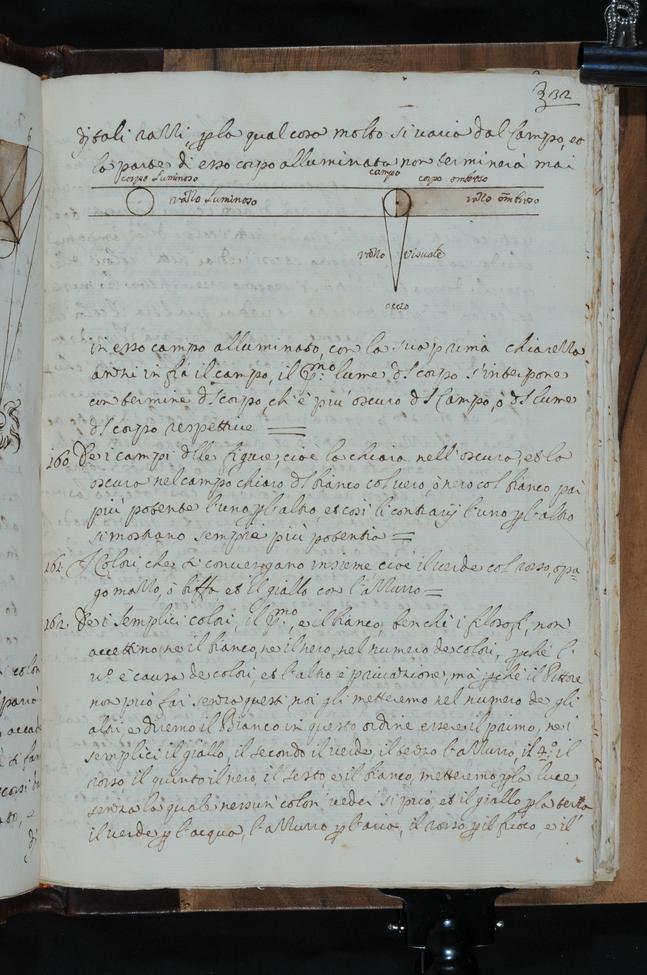 232
di tali razzi, p la qual cosa molto si varia dal campo, et
la parte di esso corpo alluminata non terminerà mai
corpo Luminoso
campo
corpo ombroso
razzo Luminoso
razzo ombroso
razzo visuale
occio
in esso campo alluminato, con la sua prima chiarezza
anzi in fra il campo, il pmo lume dl corpo s'interpone
un termine dl corpo, ch'è più oscuro dl Campo, ò dl lume
dl corpo respettiue =
160. De i campi dlle figure, cioè la chiara nell'oscuro, et la
oscura nel campo chiaro dl bianco col uero, ò nero col bianco pai
più potente l'uno p l'altro, et così li contrarij l'uno p l'altro
si mostrano sempre più potentia =
161. I Colori che si conuengano insieme cioè il uerde col rosso, o pa-
gonazzo, ò biffa et il giallo con l'azzurro =
162. De i semplici colori, il pmo, è il bianco, benchè i filosofi, non
accettino, ne il bianco, ne il nero, nel numero de colori, pchè l'
uo è causa de colori, et l'altro è priuatione, mà pchè il Pittore
non può far senza questi noi gli metteremo nel numero de gli
altri e diremo il Bianco in questo ordine essere il primo, ne i
semplici il giallo, il secondo il uerde, il terzo l'azzurro, il 4o il
rosso il quinto il nero, il sesto e il bianco, metteremo p la luce,
senza la quale nessun' color ueder si può, et il giallo p la terra
il uerde p l'acqua, l'azzurro p l'aria, il rosso p il fuoco, e il